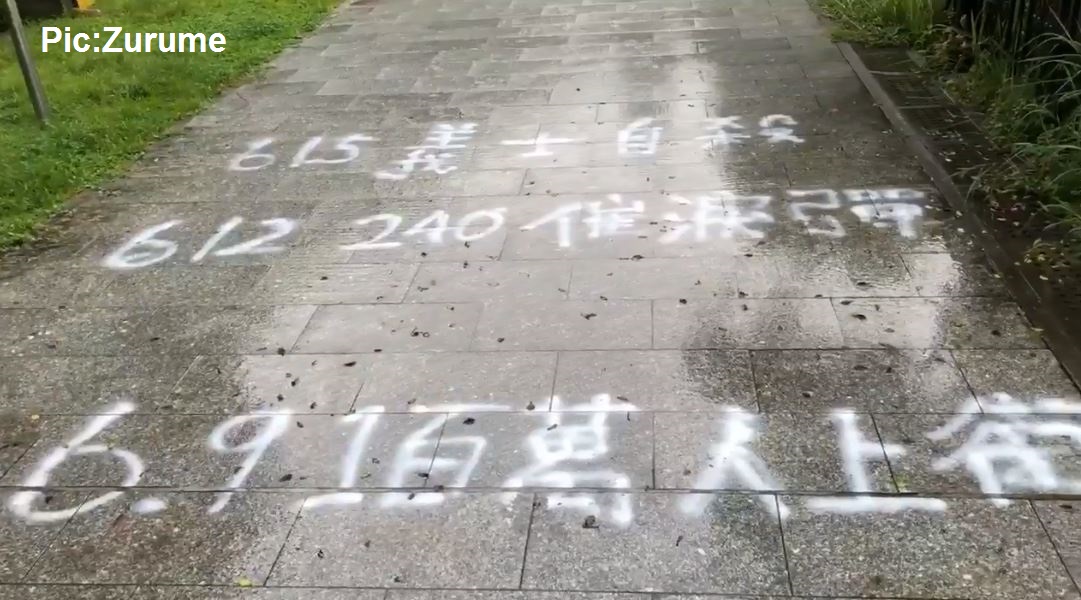 Pic:Zurume
615 義士自殺
612 240催淚彈
6.9 1百萬人上街